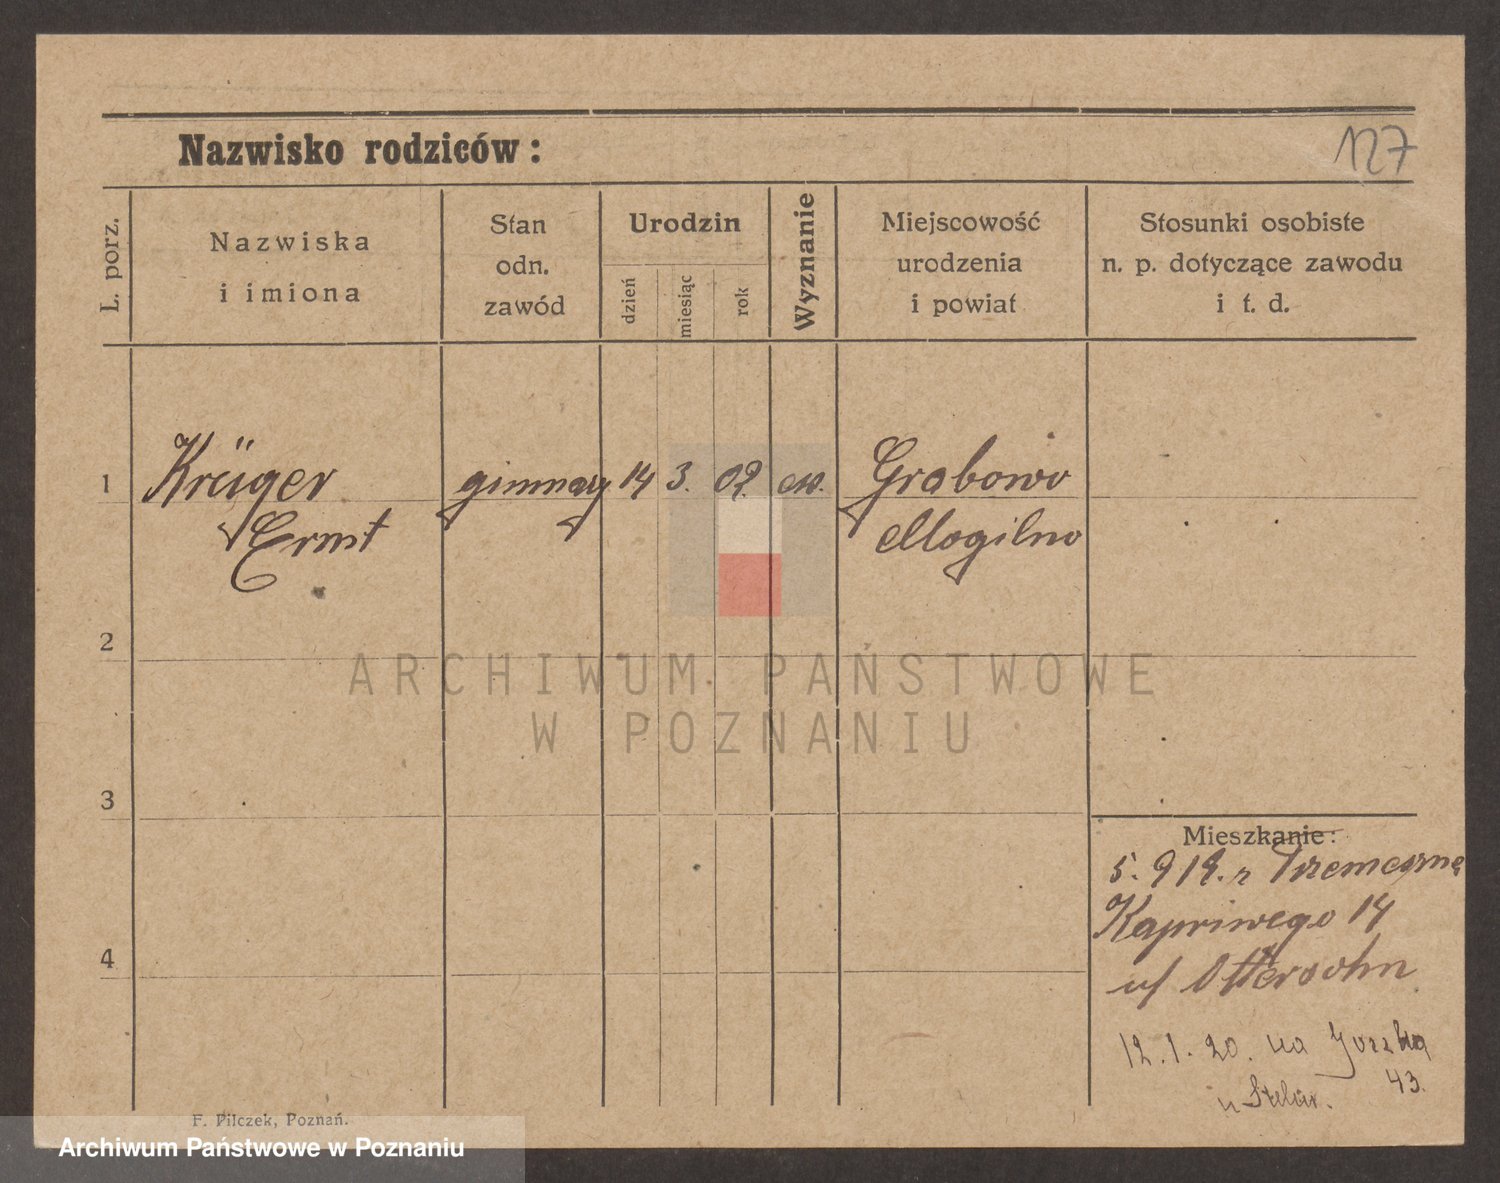 127
Nazwisko rodziców:
L. porz.
Nazwiska
i imiona
Stan
odn.
zawód
Urodzin
dzień
miesiąc
rok
Wyznanie
Miejscowość
urodzenia
i powiat
Stosunki osobiste
n. p. dotyczące zawodu
i t. d.
1
Krüger
gimnazy
14
3.
02.
ew.
Grabowo
Ernst
Mogilno
2
ARCHIWUM PAŃSTWOWE
W POZNANIU
3
Mieszkanie:
5. 9 19. z
Kapriwego 14
4
u/ Ottersohn
12. 1. 20. na
43.
u
F. Pilczek, Poznań.
Archiwum Państwowe w Poznaniu